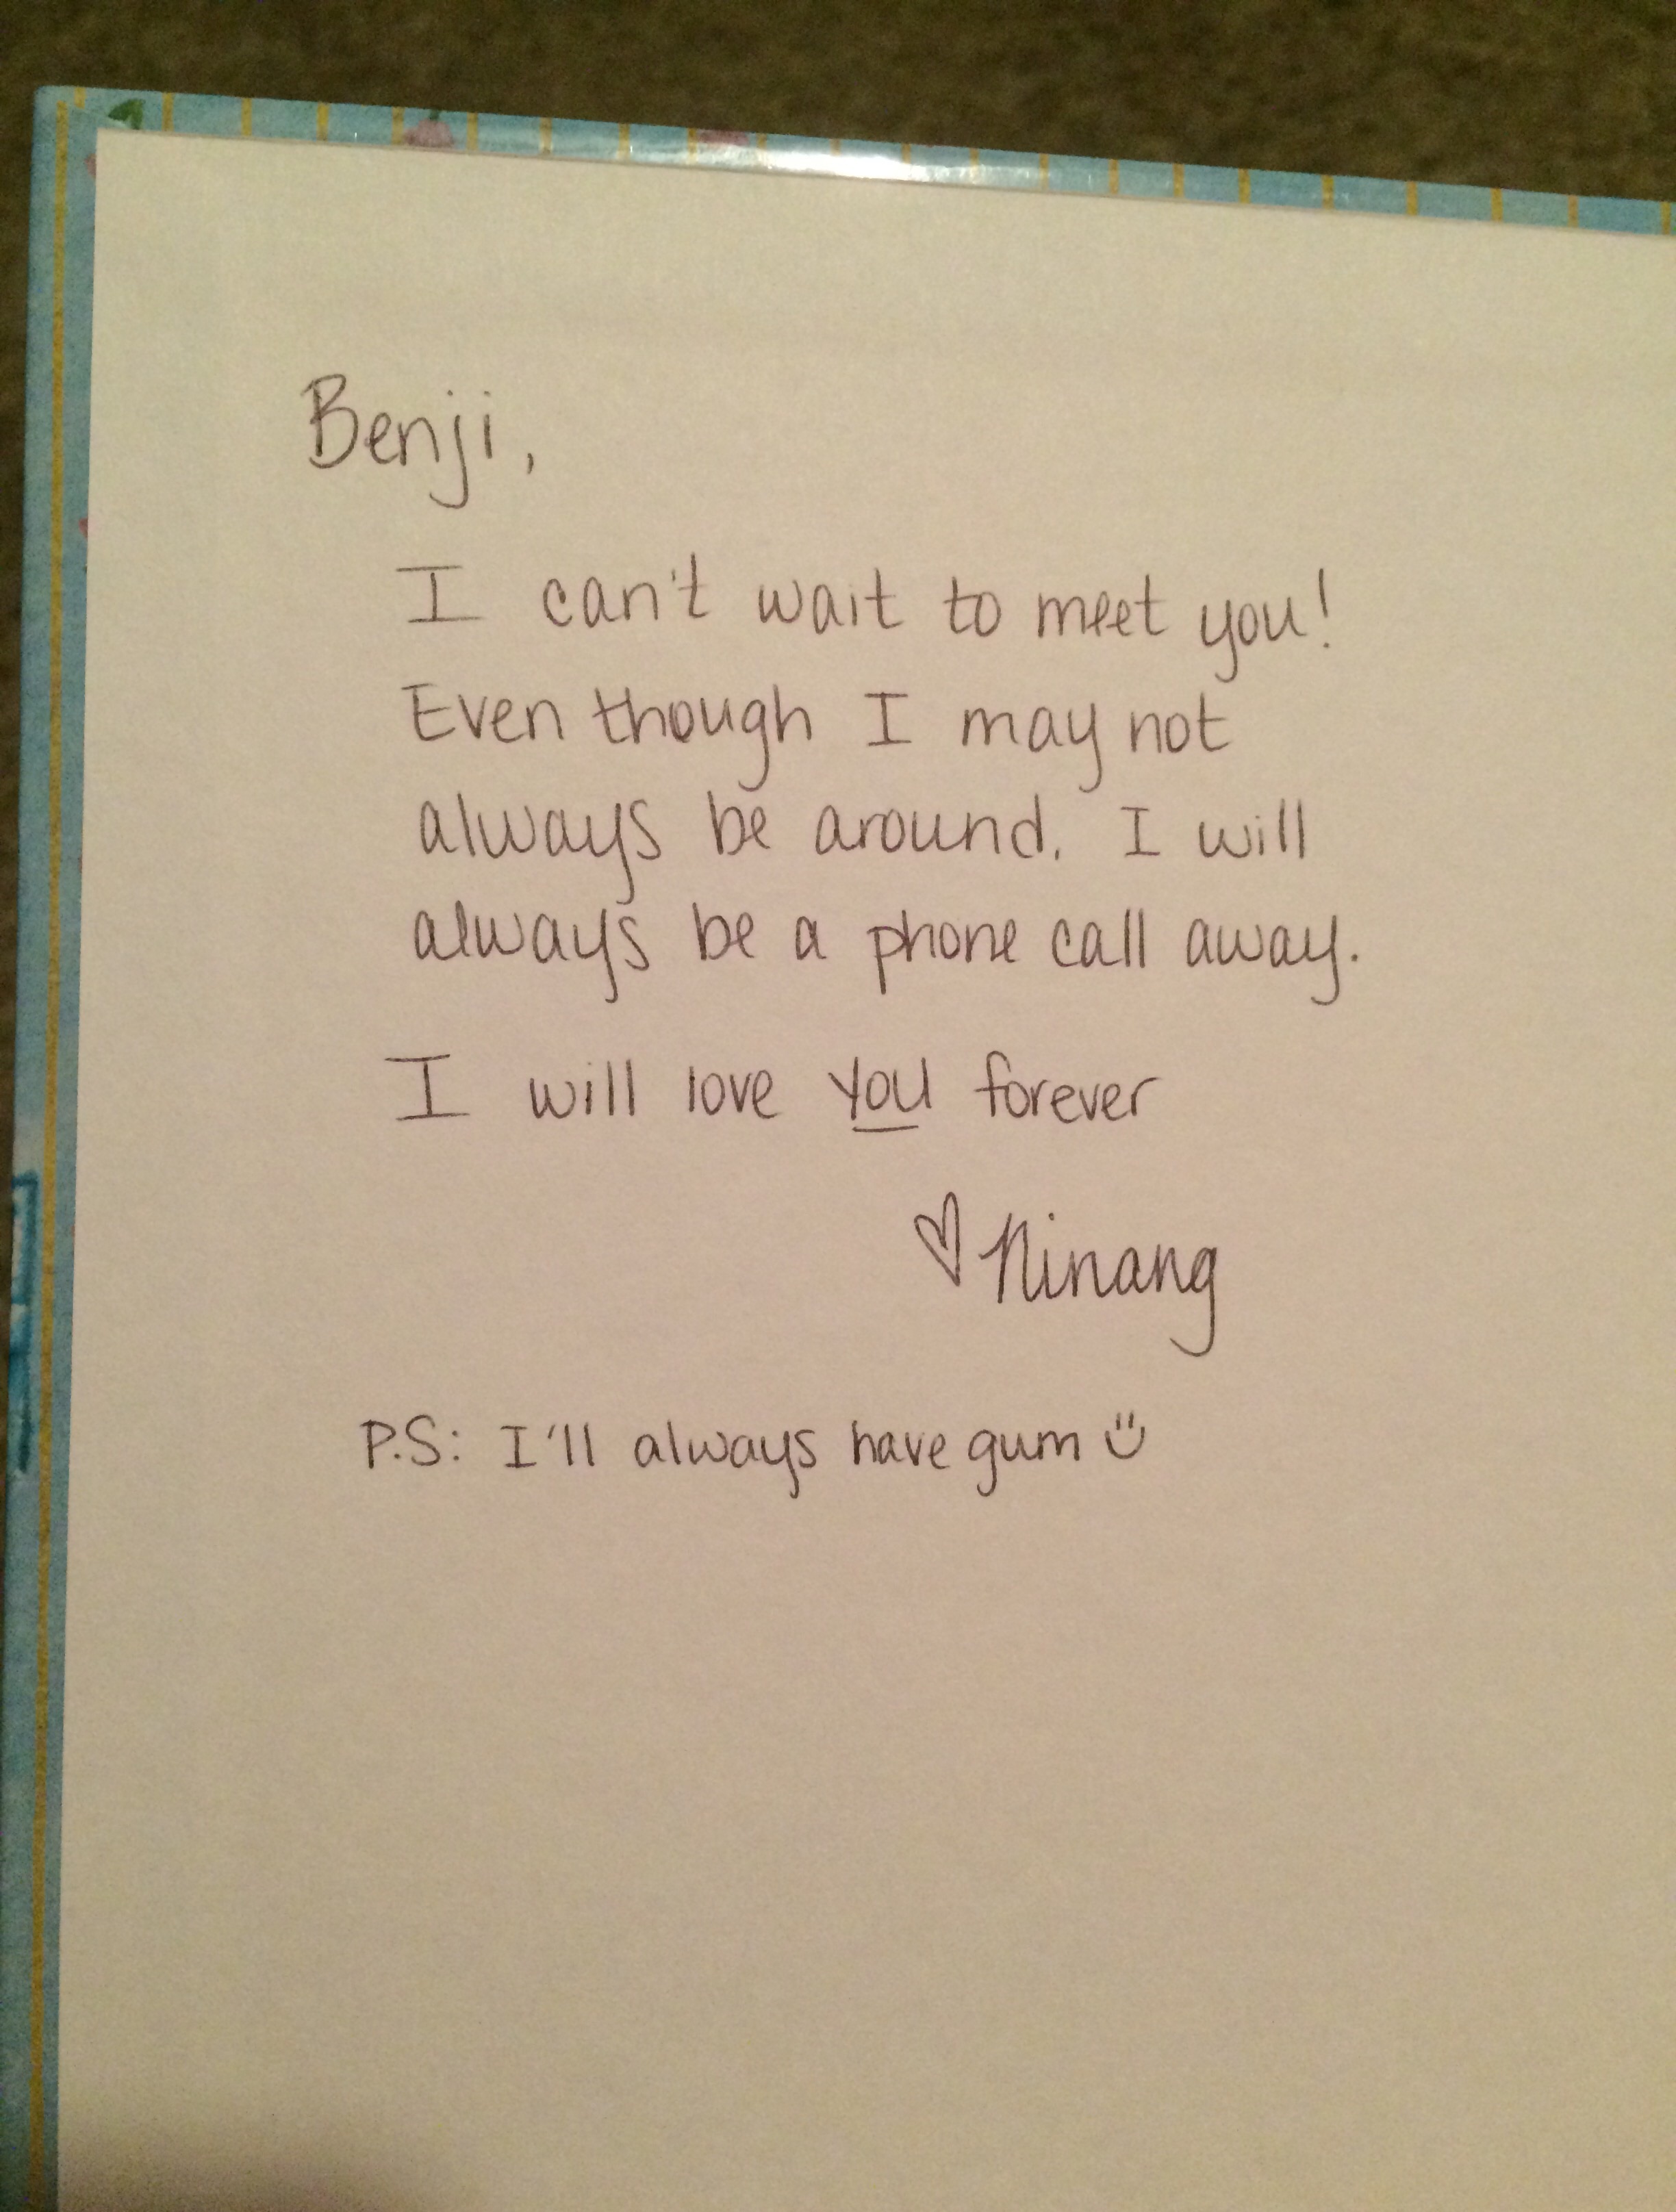 Benji,
I can't wait to meet you!
Even though I may not
always be around. I will
always be a phone call away.
I will love you forever
♡ Ninang
P.S: I'll always have gum ü